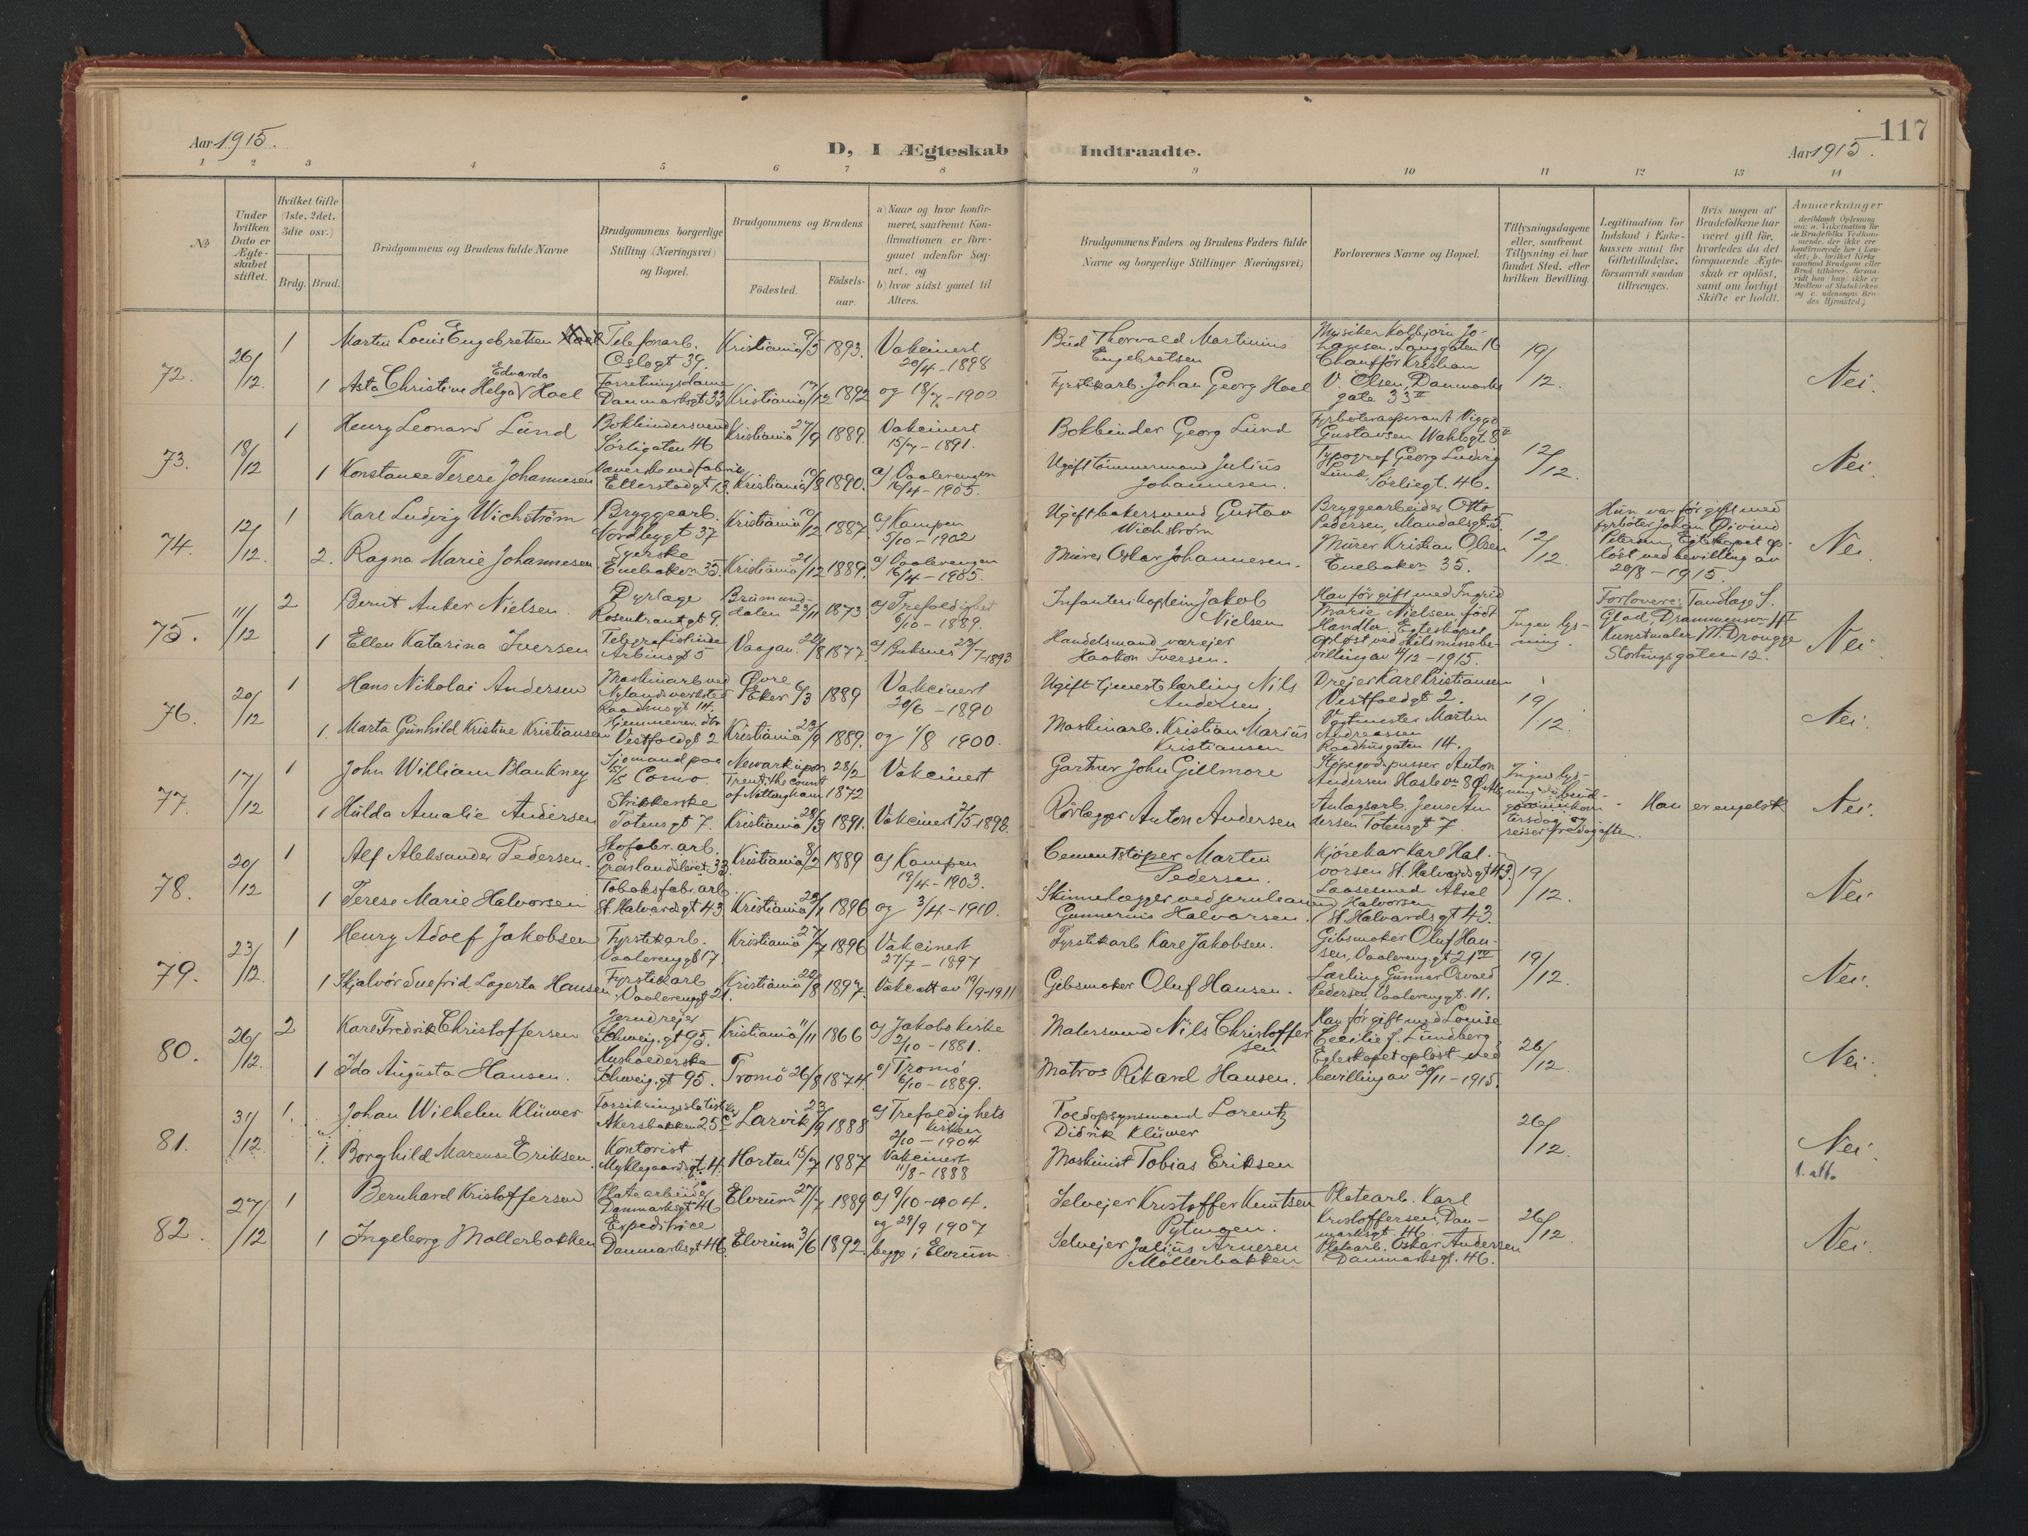 Aar 1915.
D, I Ægteskab
Indtraadte.
Aar 1915.
117
1 2 3 4 5 6 7 8 9 10 11 12 13 14
No
Under hvilken Dato er Ægteskabet stiftet.
Hvilket Gifte (1ste, 2det, 3die osv.)
Brdg. Brud.
Brudgommens og Brudens fulde Navne
Brudgommens borgerlige Stilling (Næringsvei) og Bopæl.
Brudgommens og Brudens
Födested.
Födselsaar.
a) Naar og hvor konfirmeret, saafremt Konfirmationen er foregaaet udenfor Sognet, og
b) hvor sidst gaaet til Alters.
Brudgommens Faders og Brudens Faders fulde Navne og borgerlige Stillinger (Næringsvei)
Forlovernes Navne og Bopæl.
Tillysningsdagene eller, saafremt Tillysning ei har fundet Sted, efter hvilken Bevilling.
Legitimation for Indskud i Enkekassen samt for Giftetilladelse, forsaavidt saadan tiltrænges.
Hvis nogen af Brudefolkene har været gift för, hvorledes da det foregaaende Ægteskab er oplöst, samt om lovligt Skifte er holdt.
Anmerkninger
72. 26/12 1 Martin Louis Engebretsen
Telefonarb. Oslogt 39. Kristiania 9/5 1893. Vakcinert 20/4 - 1898
Bud Thorvald Martinius Engebretsen
Musiker Kolbjørn Johansen, Langgaten 16
19/12. Nei
1 Asta Christine Helga Edvarda Hoel
Forretningsdame Danmarksgt 33 Kristiania 17/12 1892 og 1900.
Fyrstikarb. Johan Georg Hoel
Chauffør Kristian V. Olsen, Danmarks gate 33 II
73. 18/12 1 Henry Leonard Lund
Bokbindersvend Sørligaten 46 Kristiania 27/9 1889. Vakcinert 15/7 - 1891.
Bokbinder Georg Lund
Fyrbøteraspirant Viggo Gustavsen Wahlsgt 8 II
12/12. Nei.
1 Konstance Terese Johannesen
Væverske ved fabrik Etterstadgt 13. Kristiania 10/8 1890. a/ Vaalerengen 16/4 - 1905.
Ugift tømmermand Julius Johannesen.
Typograf Georg Ludvig Lund, Sørligt. 46.
74. 12/12 1 Karl Ludvig Wichstrøm
Bryggearb. Nordbygt 37 Kristiania 10/12 1887. a/ Kampen 5/10 - 1902
Ugift bakersvend Gustav Wichstrøm
Bryggearbeider Otto Pedersen, Mandalsgt 5.
12/12
Hun var før gift med fyrbøter Johan Øivind Petersen, Egteskapet opløst ved bevilling av 20/8 - 1915.
Nei
2. Ragna Marie Johannesen
Syerske Enebakvn 35. Kristiania 21/12 1889. a/ Vaalerengen 16/4 - 1905.
Murer Oskar Johannesen.
Murer Kristian Olsen Enebakvn 35.
75. 11/12 2 Bernt Anker Nielsen.
Dyrlæge Rosenkrantzgt 9. Brumunddalen 23/11 1873 a/ Trefoldighet 6/10 - 1889.
Infanterikaptein Jakob Nielsen
Han før gift med Ingrid Marie Nielsen født Handler. Egteskapet opløst ved skilsmissebevilling av 4/12 - 1915.
Ingen lysning.
Forlovere: Tandlæge S. Glad, Drammensvn Kunstmaler M. Drougge Stortingsgaten 12.
Nei.
1 Ellen Katarina Iversen
Telegrafistinde Arbinsgt 5 Vaagan. 22/8 1877. a/ Buksnes 23/7 1893
Handelsmand, væreier Haakon Iversen.
76. 20/12 1 Hans Nikolai Andersen
Maskinarb. ved Nylands verksted Raadhusgt 14. Øvre Eker 6/3 1889 Vakcinert 20/6 - 1890
Ugift tjeneste lærling Nils Andersen
Dreier Karl Kristiansen Vestfoldgt 2.
19/12. Nei.
1. Marta Gunhild Kristine Kristiansen
Hjemmeværende dtr Vestfoldgt 2 Kristiania 23/9 1889. og 1/8 1900.
Maskinarb. Kristian Marius Kristiansen
Vegtmester Martin Andreassen Raadhusgaten 14.
77. 17/12 1 John William Blankney
Sjømand paa S/S Como. Newark upon Trent in the county of Nottingham 28/2 1872 Vakcinert
Gartner John Gillmore
Støpegodspusser Anton Andersen Haslevn 8
Ingen lysning
Han er engelsk
Nei.
1 Hulda Amalie Andersen
Strikkerske Totensgt 7. Kristiania 28/3 1891. Vakcinert 2/5 - 1898.
Rørlægger Anton Andersen
Anlægsarb. Jens Andersen Totensgt 7.
78. 20/12 1 Alf Aleksander Pedersen.
Skofabr. arb. Grønlandsleiret 33. Kristiania 8/2 1889 a/ Kampen 19/4 - 1903.
Cementstøper Martin Pedersen.
Kjørekar Karl Halvorsen St. Halvardsgt 43.
19/12. Nei
1 Terese Marie Halvorsen
Tobaksfabr. arb. St. Halvardsgt 43 Kristiania 23/1 1896 og 3/4 - 1910.
Skinnelægger ved jernbanen Gunnerius Halvorsen.
Laasesmed Aksel Halvorsen St. Halvardsgt 43.
79. 23/12. 1 Henry Adolf Jakobsen
Fyrstikarb. Vaalerenggt 17 Kristiania 27/7 1896 Vakcinert 27/7 - 1897
Fyrstikarb Karl Jakobsen.
Gibsmaker Oluf Hansen, Vaalerenggt 21 III
19/12. Nei.
1 Skjalvør Snefrid Lagerta Hansen
Fyrstikarb. Vaalerenggt 21. Kristiania 22/8 1897. Vakc. att av 19/9 - 1911
Gibsmaker Oluf Hansen.
Lærling Gunnar Osvald Pedersen, Vaalerenggt. 11.
80. 26/12. 2 Karl Fredrik Christoffersen
Jerndreier Schweig.gt 95. Kristiania 11/11 1866 a/ Jakobs kirke 2/10 - 1881.
Malersvend Nils Christoffersen
Han før gift med Louise Cecilie f. Lundberg Egteskapet opløst ved bevilling av 20/11 - 1915.
26/12 Nei.
1 Ida Augusta Hansen.
Husholderske Schweig.gt 95. Tromø 26/8 1874. a/ Tromø 6/10 - 1889.
Matros Rikard Hansen.
81. 31/12. 1. Johan Wilhelm Klüwer
Akersbakken 25 c Larvik 23/9 1888 a/ Trefoldighets kirken 2/10 - 1904
Toldopsynsmand Lorentz Didrik Klüwer
26/12. Nei.
1. att.
1. Borghild Marense Eriksen.
Kontorist Myklegaardsgt. 4. Horten 15/7 1887 Vakcinert 11/8 - 1888
Maskinist Tobias Eriksen
82. 27/12 1 Bernhard Kristoffersen
Platearbeider Danmarksgt 46 Elverum 27/7 1889 a/ 9/10 - 1904.
Selveier Kristoffer Knutsen
Platearb. Karl Kristoffersen, Danmarksgt. 46.
26/12. Nei.
1 Ingeborg Møllerbakken
Expeditrice Danmarksgt 46. Elverum 3/6 1892. og 29/9 1907 begge i Elverum.
Selveier Julius Arnesen Møllerbakken
Platearb. Oskar Andersen Danmarksgt. 46.